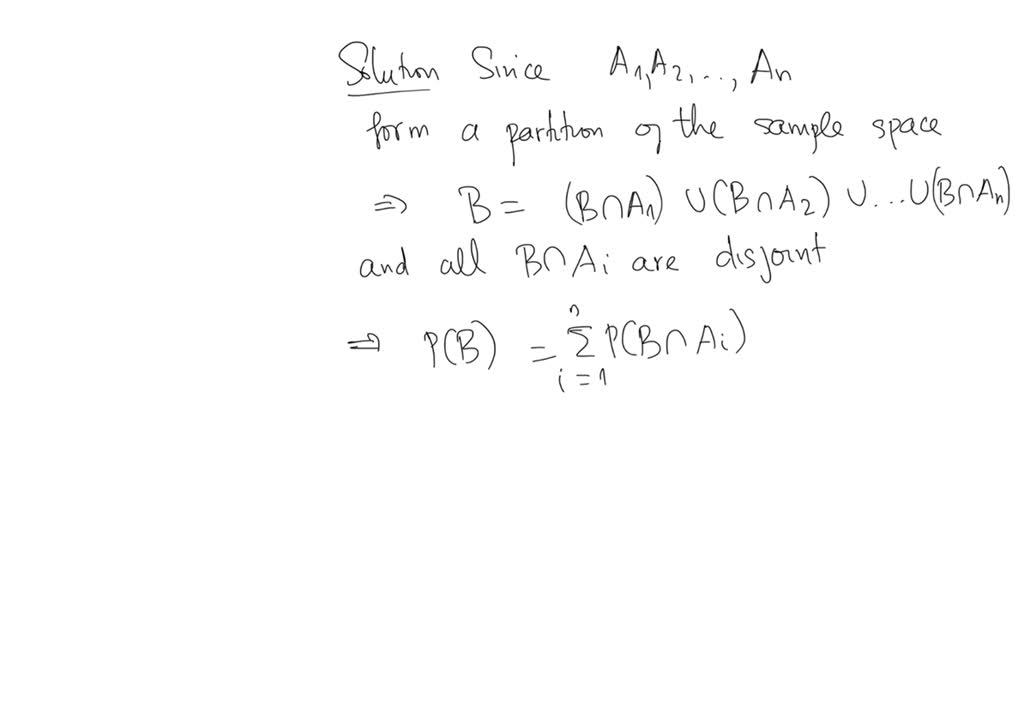 Solution Since A1, A2, ..., An
form a partition of the sample space
⇒ B = (B∩A1) ∪ (B∩A2) ∪ ... ∪ (B∩An)
and all B∩Ai are disjoint
⇒ P(B) = ∑_{i=1}^{n} P(B∩Ai)